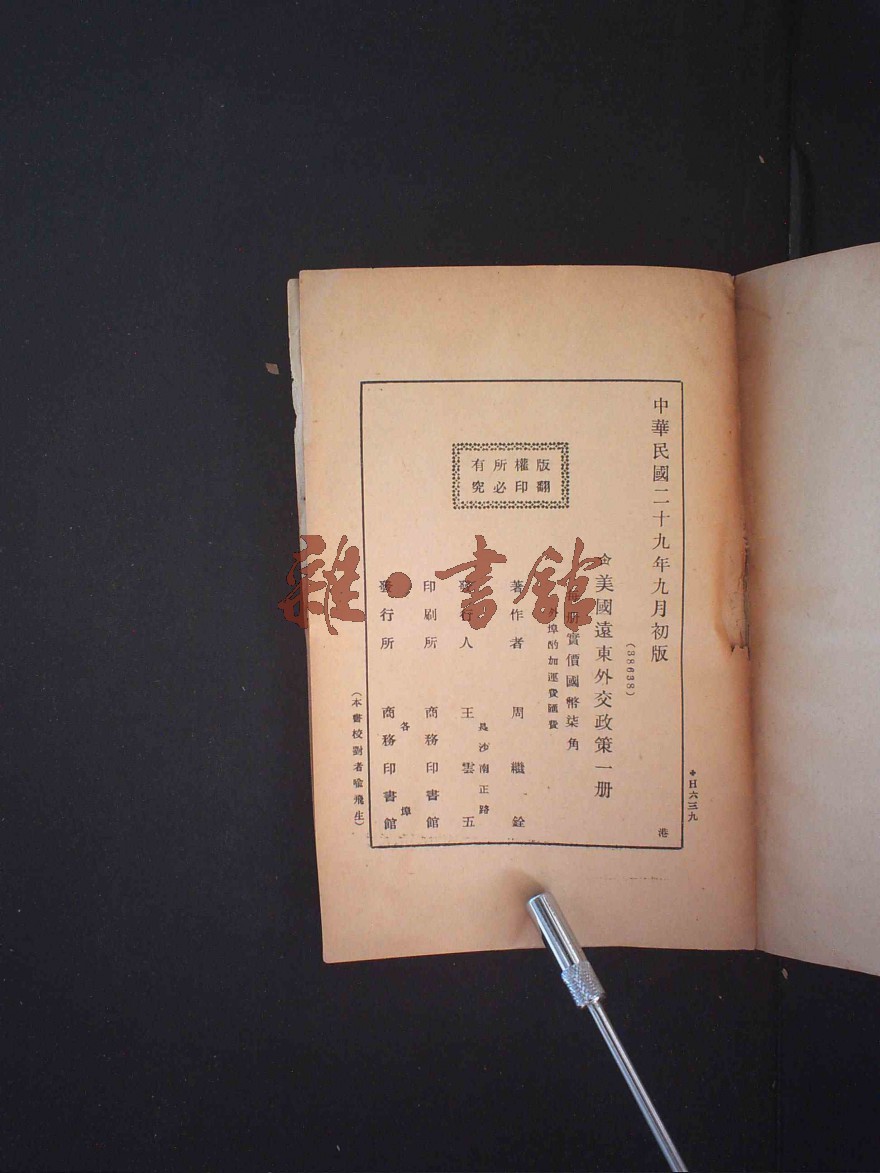 ✦H六三九
中華民國二十九年九月初版
港
(38638)
美國遠東外交政策一册
每册實價國幣柒角
外埠酌加運費匯費
版權所有
翻印必究
著作者 周繼銓
發行人 王雲五
長沙南正路
印刷所 商務印書館
各埠
發行所 商務印書館
(本書校對者喻飛生)
雜·書館